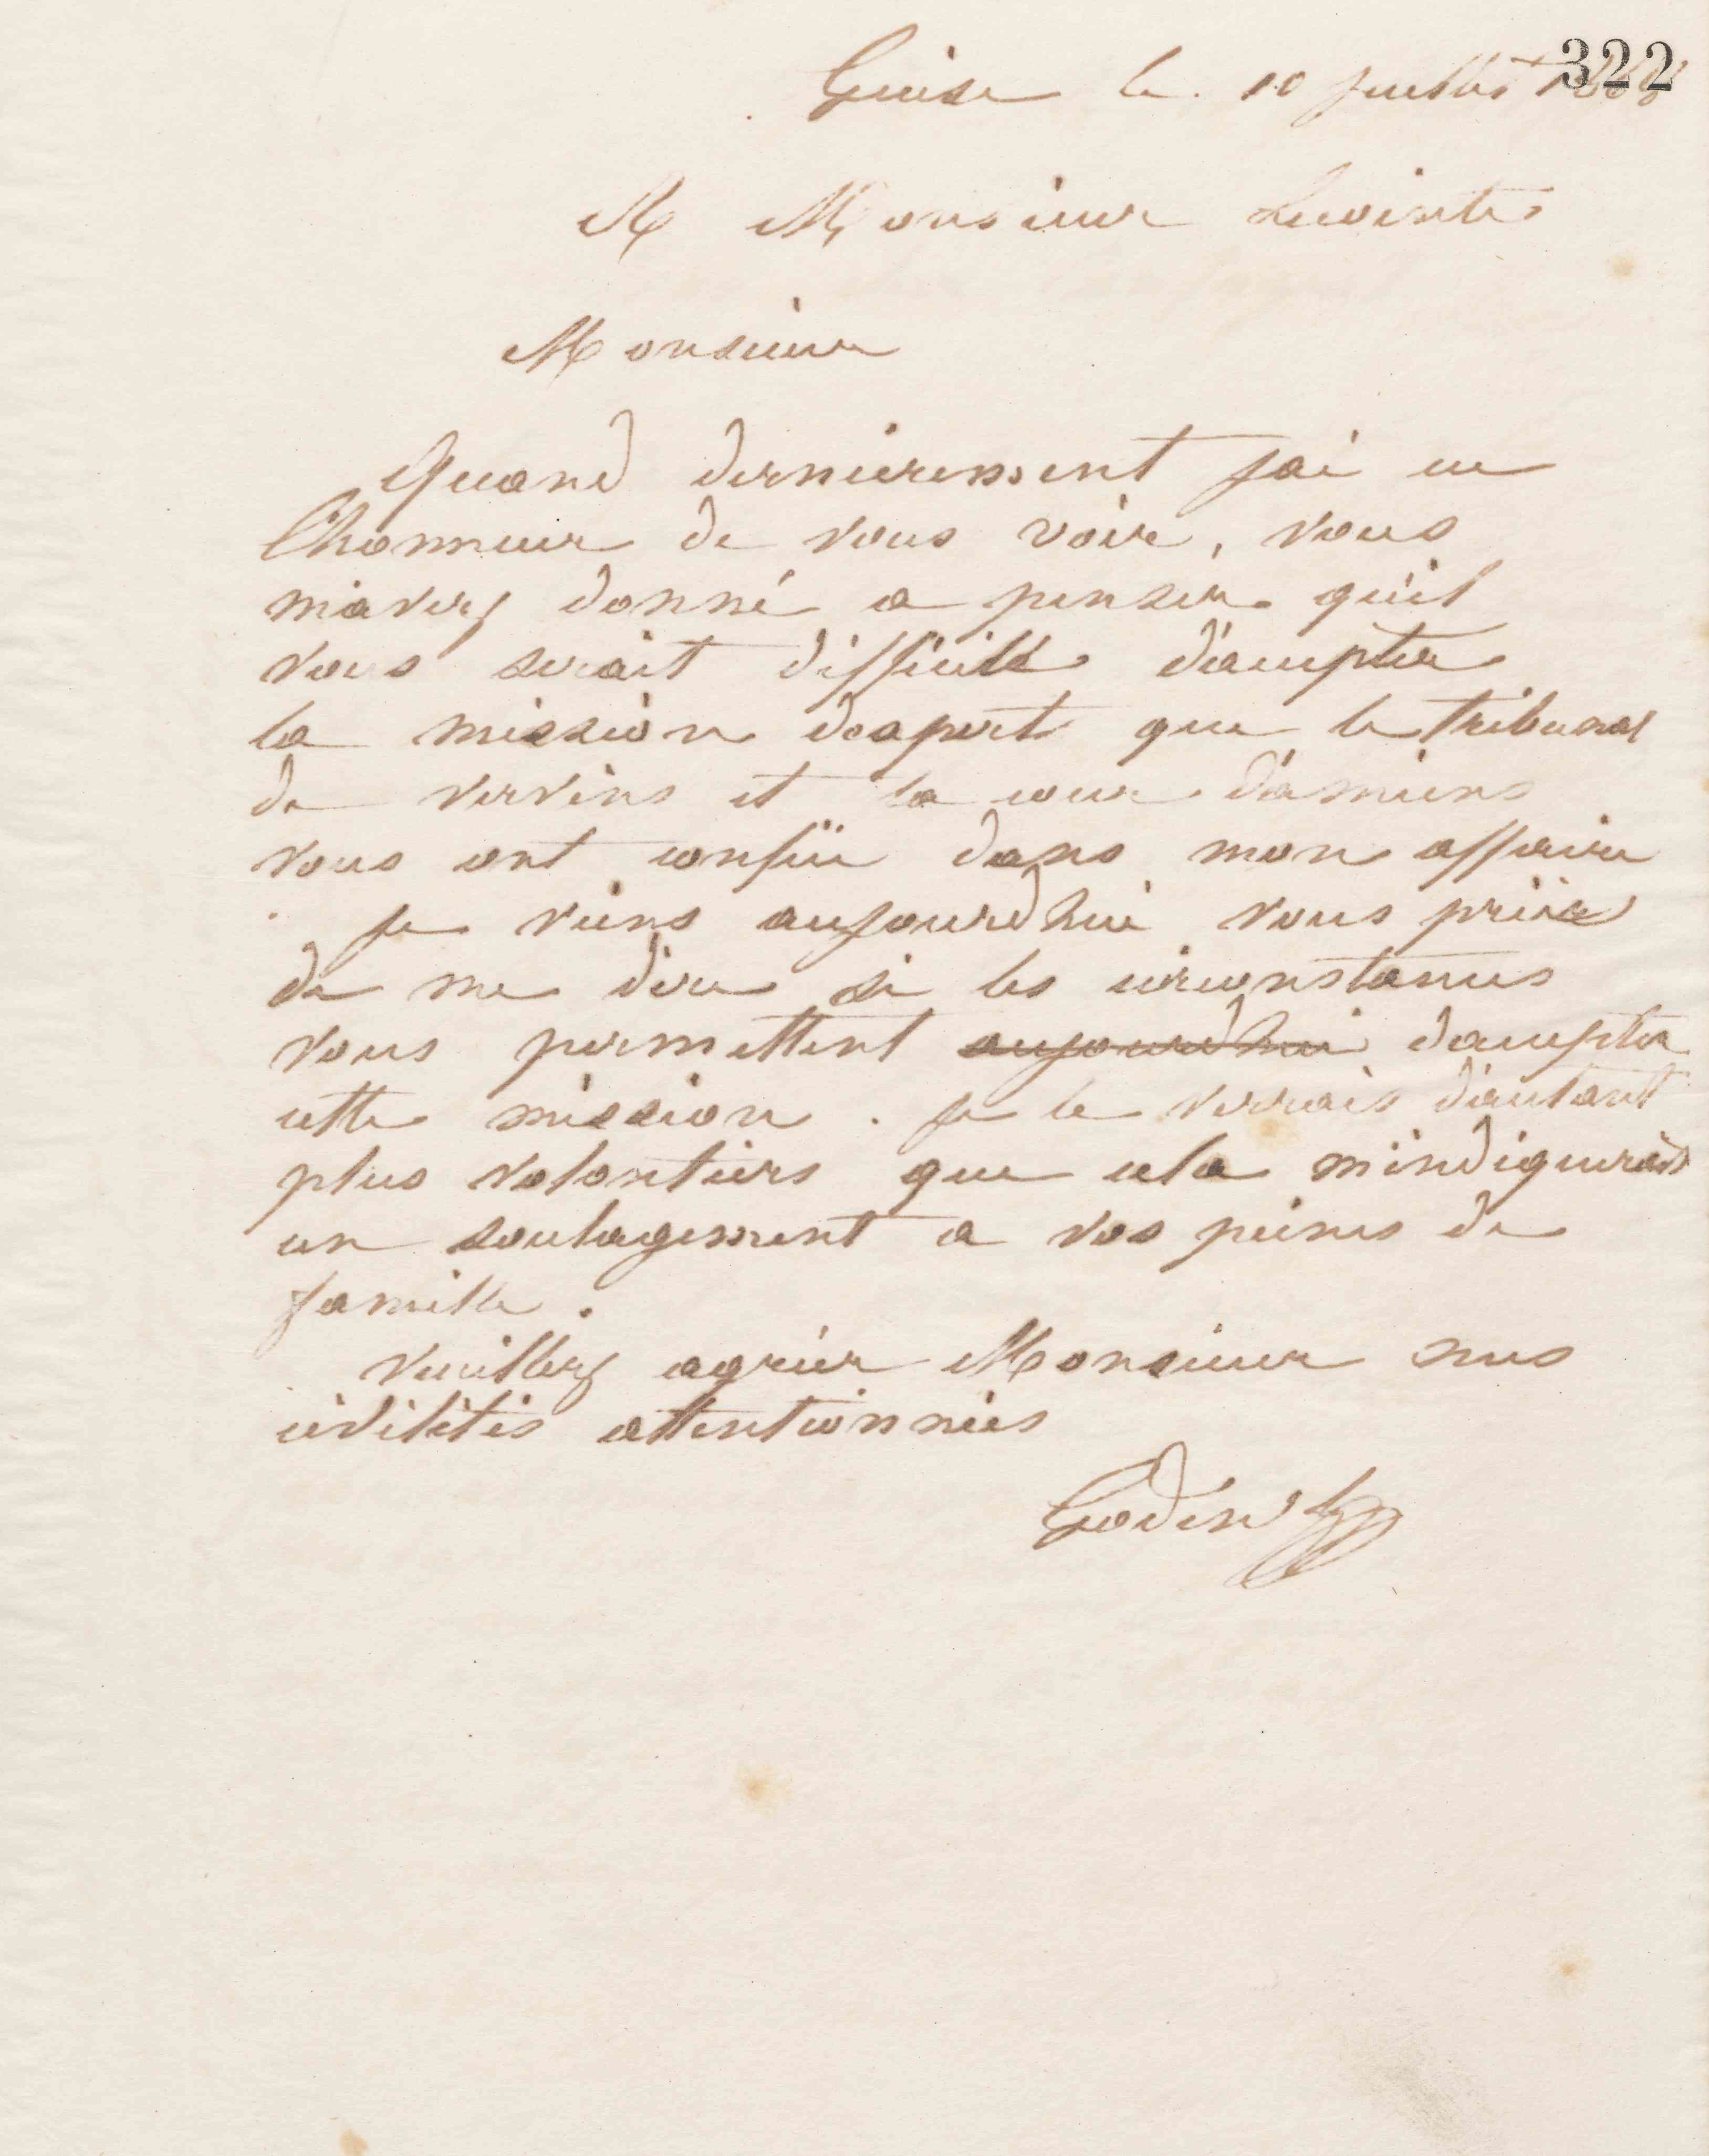 322
Guise le 10 juillet
A Monsieur Lecointe
Monsieur
Quand dernierement jai eu
lhonneur de vous voir, vous
mavez donné a penser qu'il
vous serait difficille d'accepter
la mission dexpert que le tribunal
de vervins et la cour d'amiens
vous ont confiée dans mon affaire
je viens aujourdhui vous priér
de me dire si les circonstances
vous permettent aujourdhui daccepter
cette mission. je le verrais d'autant
plus volontiers que cela m'indiquerais
un soulagement a vos peines de
famille.
veuillez agréer Monsieur mes
civilités attentionnées
Godin